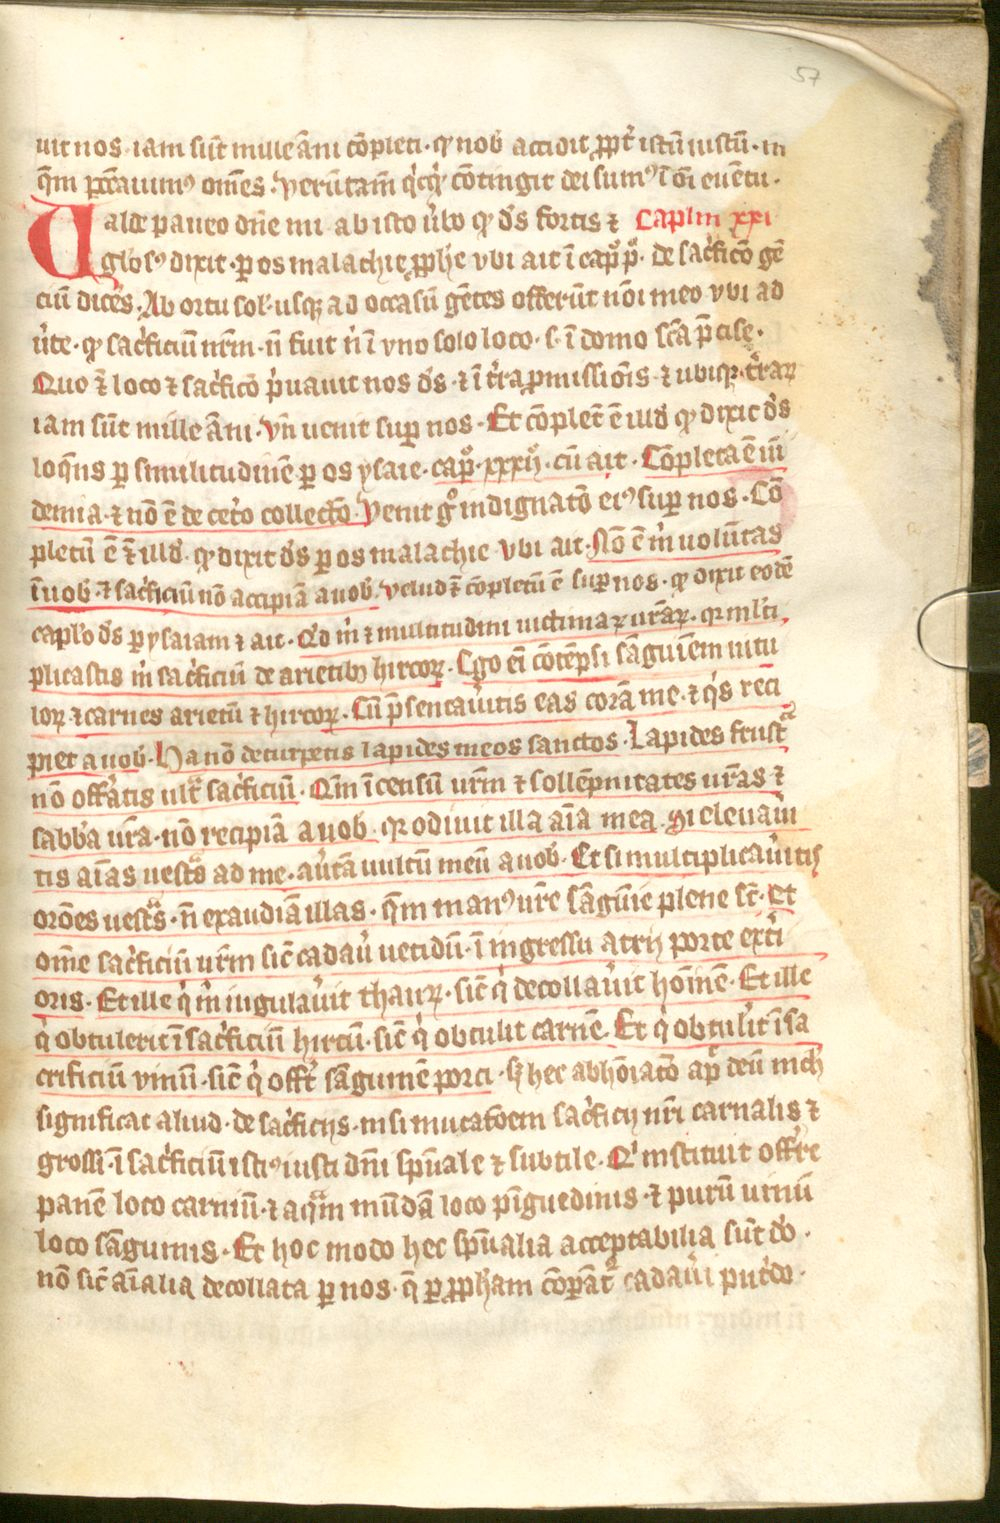 57
uit nos iam sūt mille āni cōpleti · qͥ nob̄ accidit ꝓpt̄ istū iustū · in
quē peccauimꝰ om̄es · Verūtam̄ qͥcqͥd cōtingit dei sumꝰ ī oī euētu ·
Valde paueo dn̄e mi ab isto ūbo qͥ dꝰs fortis ⁊ Caplm̄ xxi
gl̓osꝰ dixit · ꝑ os malachie ꝓphe vbi ait ī capͦ pͦ · de sac̓ficō gē
ciū dicēs · Ab ortu sol̓ · usqꝫ ad occasū gētes offerūt nōi meo vbi ad
u̓te · qͥ sac̓ficiū nr̄m · n̄ fuit n̓ ī vno solo loco · s · ī domo sc̄a p̄cise ·
Quo ⁊̄ loco ⁊ sac̓ficō p̓uauit nos dꝰs · ⁊ ī t̓ra ꝓmissiōis · ⁊ ubiqꝫ t̓raꝝ
iam sūt mille āni · Vn̄ uenit suꝑ nos · Et cōplet̄ ē illd̓ qͥ dixit dꝰs
loq̄ns ꝑ similitudinē ꝑ os ysaie · capͦ · xxxij · cū ait · Cōpleta ē uī
demia · ⁊ nō ē de cet̓o collectō · Venit gͦ indignatō eiꝰ suꝑ nos · Cō
pletū ē ⁊̄ illd̓ · qͥ dixit dꝰs ꝑ os malachie vbi ait · Nō ē m̓ uolūtas
ī uob̓ · ⁊ sac̓ficiū nō accipiā a uob̓ · Velud ⁊̄ cōpletū ē suꝑ nos · qͥ dixit eodē
capl̓o dꝰs ꝑ ysaiam ⁊ ait · Qͥd m̓ ⁊ multitudini uictimaꝝ ur̄aꝝ · qꝛ ml̓ti
plicastis m̓ sac̓ficiū de arietibꝫ hircoꝝ · Ego eī cōtēpsi sāguīem uitu
loꝝ ⁊ carnes arietū ⁊ hircoꝝ · Cū p̄sentau̓itis eas corā me · ⁊ qͥs reci
piet a uob̓ · Ha nō decurretis lapides meos sanctos · Lapides frustͣ
nō offͣtis ult̓ sac̓ficiū · Qm̄ īcensū ur̄m ⁊ sollēpnitates ur̄as ⁊
sabb̓a ur̄a · nō recipiā a uob̓ · qꝛ odiuit illa aīa mea · Si eleuau̓i
tis aīas uestͣs ad me · au̓tā uultū meū a uob̓ · Et si multiplicau̓itis
orōes uestͣs · n̄ exaudiā illas · qm̄ manꝰ ur̄e sāguīe plene st̄ · Et
om̄e sac̓ficiū ur̄m sic̄ cadau̓ uetidū · ī ingressu atrij porte ext̓i
oris · Et ille qͥ m̓ iugulau̓it thauꝝ · sic̄ qͥ decollau̓it hoīem̄ · Et ille
qͥ obtulerit ī sac̓ficiū hircū · sic̄ qͥ obtulit carnē · Et qͥ obtul̓it ī sa
crificiū vinū · sic̄ qͥ offt̓ sāguinē porci · sꝫ hec abhōiatō apͩ deū nich̓
significat aliud · de sac̓ficijs · nisi mutatōem sac̓ficij nr̄i carnalis ⁊
grossi · ī sac̓ficiū istiꝰ iusti dn̄i spūale ⁊ subtile · Qͥ instituit offr̓e
panē loco carniū · ⁊ aquā mūdā loco pīguedinis · ⁊ purū uinū
loco sāguinis · Et hoc modo hec spūalia acceptabilia sūt dō ·
nō sic̄ aīalia decollata ꝑ nos · q̄ ꝑ ꝓpham cōꝑat̄ cadau̓i put̓do ·